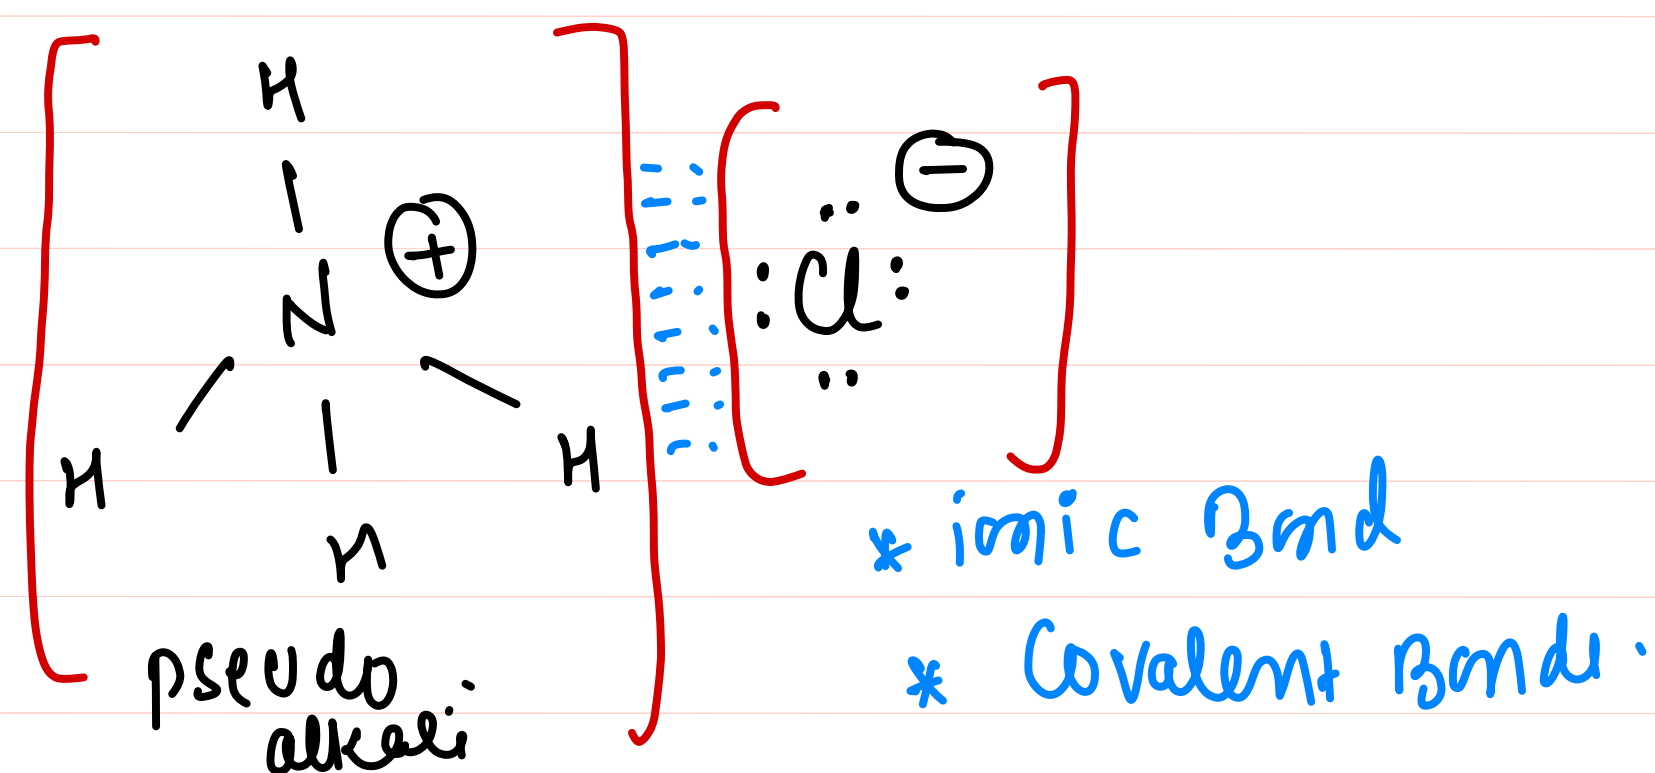 H
N ⊕
H H
H
pseudo
alkali
⊖
:Cl:
* ionic Bond
* Covalent Bonds.